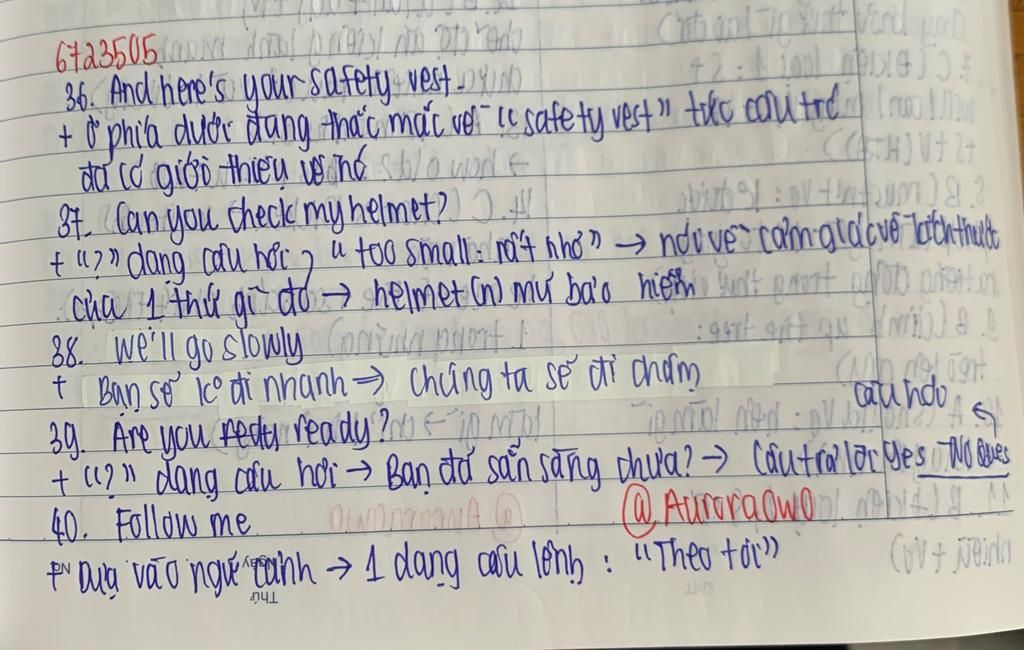 6723505
36. And here's your safety vest.
+ Ở phía dưới đang thắc mắc về "safety vest" tức câu trc
đã có giới thiệu về nó
37. Can you check my helmet?
+ "?" dạng câu hỏi, "too small: rất nhỏ" → nói về cảm giác về kích thước
của 1 thứ gì đó → helmet (n) mũ bảo hiểm
38. We'll go slowly
+ Bạn sẽ ko đi nhanh ⇒ chúng ta sẽ đi chậm
39. Are you ready?
câu hdo
+ "?" dạng câu hỏi → Bạn đã sẵn sàng chưa? → Câu trả lời Yes No Ques
40. Follow me
@Auroraowo
+ Dựa vào ngữ cảnh → 1 dạng câu lệnh : "Theo tôi"
Thứ
Ngày